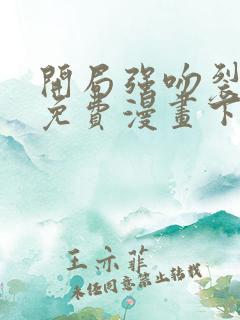 開局強吻裂
免費漫畫下
王亦菲
未經同意禁止轉載